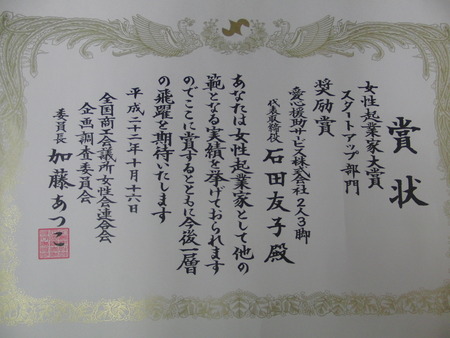 賞状
女性起業家大賞
スタートアップ部門
奨励賞
愛心援助サービス株式会社2人3脚
代表取締役 石田友子殿
あなたは女性起業家として他の
範となる実績を挙げておられます
のでここに賞するとともに今後一層
の飛躍を期待いたします
平成二十二年十月十六日
全国商工会議所女性会連合会
企画調査委員会
委員長 加藤あつこ